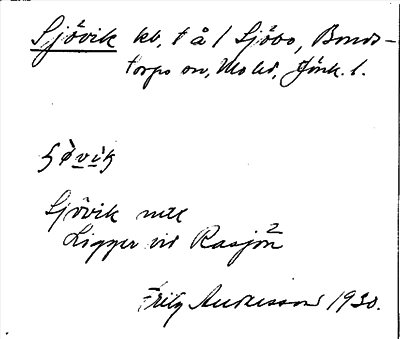 Sjövik kb, t å 1 Sjöbo, Bonds-
torps sn, Mo hd, Jönk. l.
Sjövik
Ligger vid Rasjön
Fritz Andersson 1930.